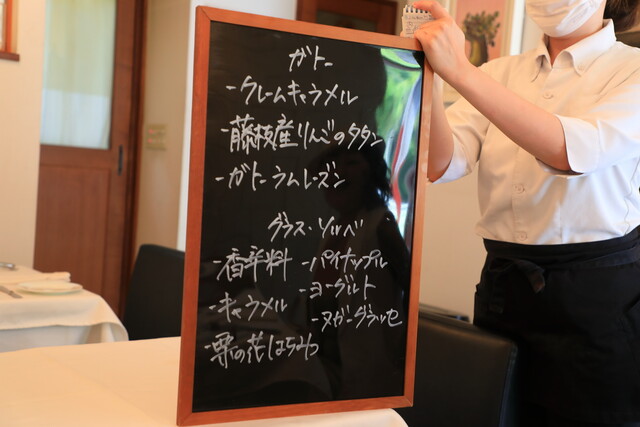 ガトー
-クレームキャラメル
-藤枝産りんごのタタン
-ガトーラムレーズン
グラス・ソルベ
-香辛料 -パイナップル
-キャラメル -ヨーグルト
-栗の花はちみつ -ヌガーグラッセ